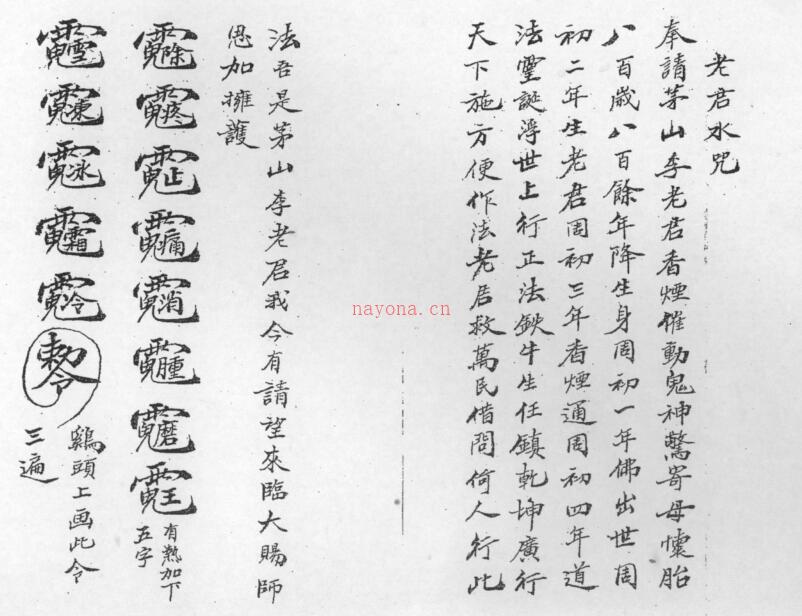 老君水咒
奉請茅山李老君香煙催動鬼神驚寄母懷胎
八百歲八百餘年降生身周初一年佛出世周
初二年生老君周初三年香煙通周初四年道
法靈誕浮世上行正法欽牛生任鎮乾坤廣行
天下施方便作法老君救萬民借問何人行此
法吾是茅山李老君我今有請望來臨大賜師
恩加擁護
有熱加下
五字
敕令
鷄頭上画此令
三遍
nayona.cn